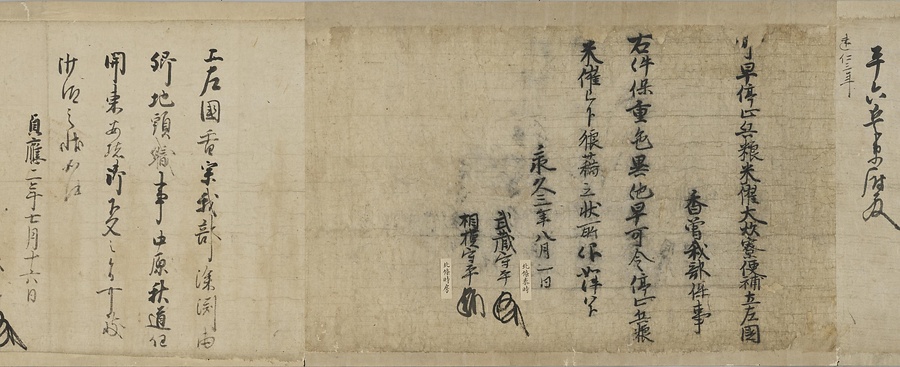 平六兵衛尉殿
建仁三年
可早停止兵粮米催大炊寮便補土左國
香曾我部保事
右件保重色異他早可令停止兵粮
米催以下狼藉之状所仰如件以下
承久三年八月一日
武蔵守平
北條泰時
相模守平
北條時房
土左國香宗我部深渕両
郷地頭職事中原秋道任
関東安堵御下文之旨可致
沙汰之状如件
貞應二年七月十六日